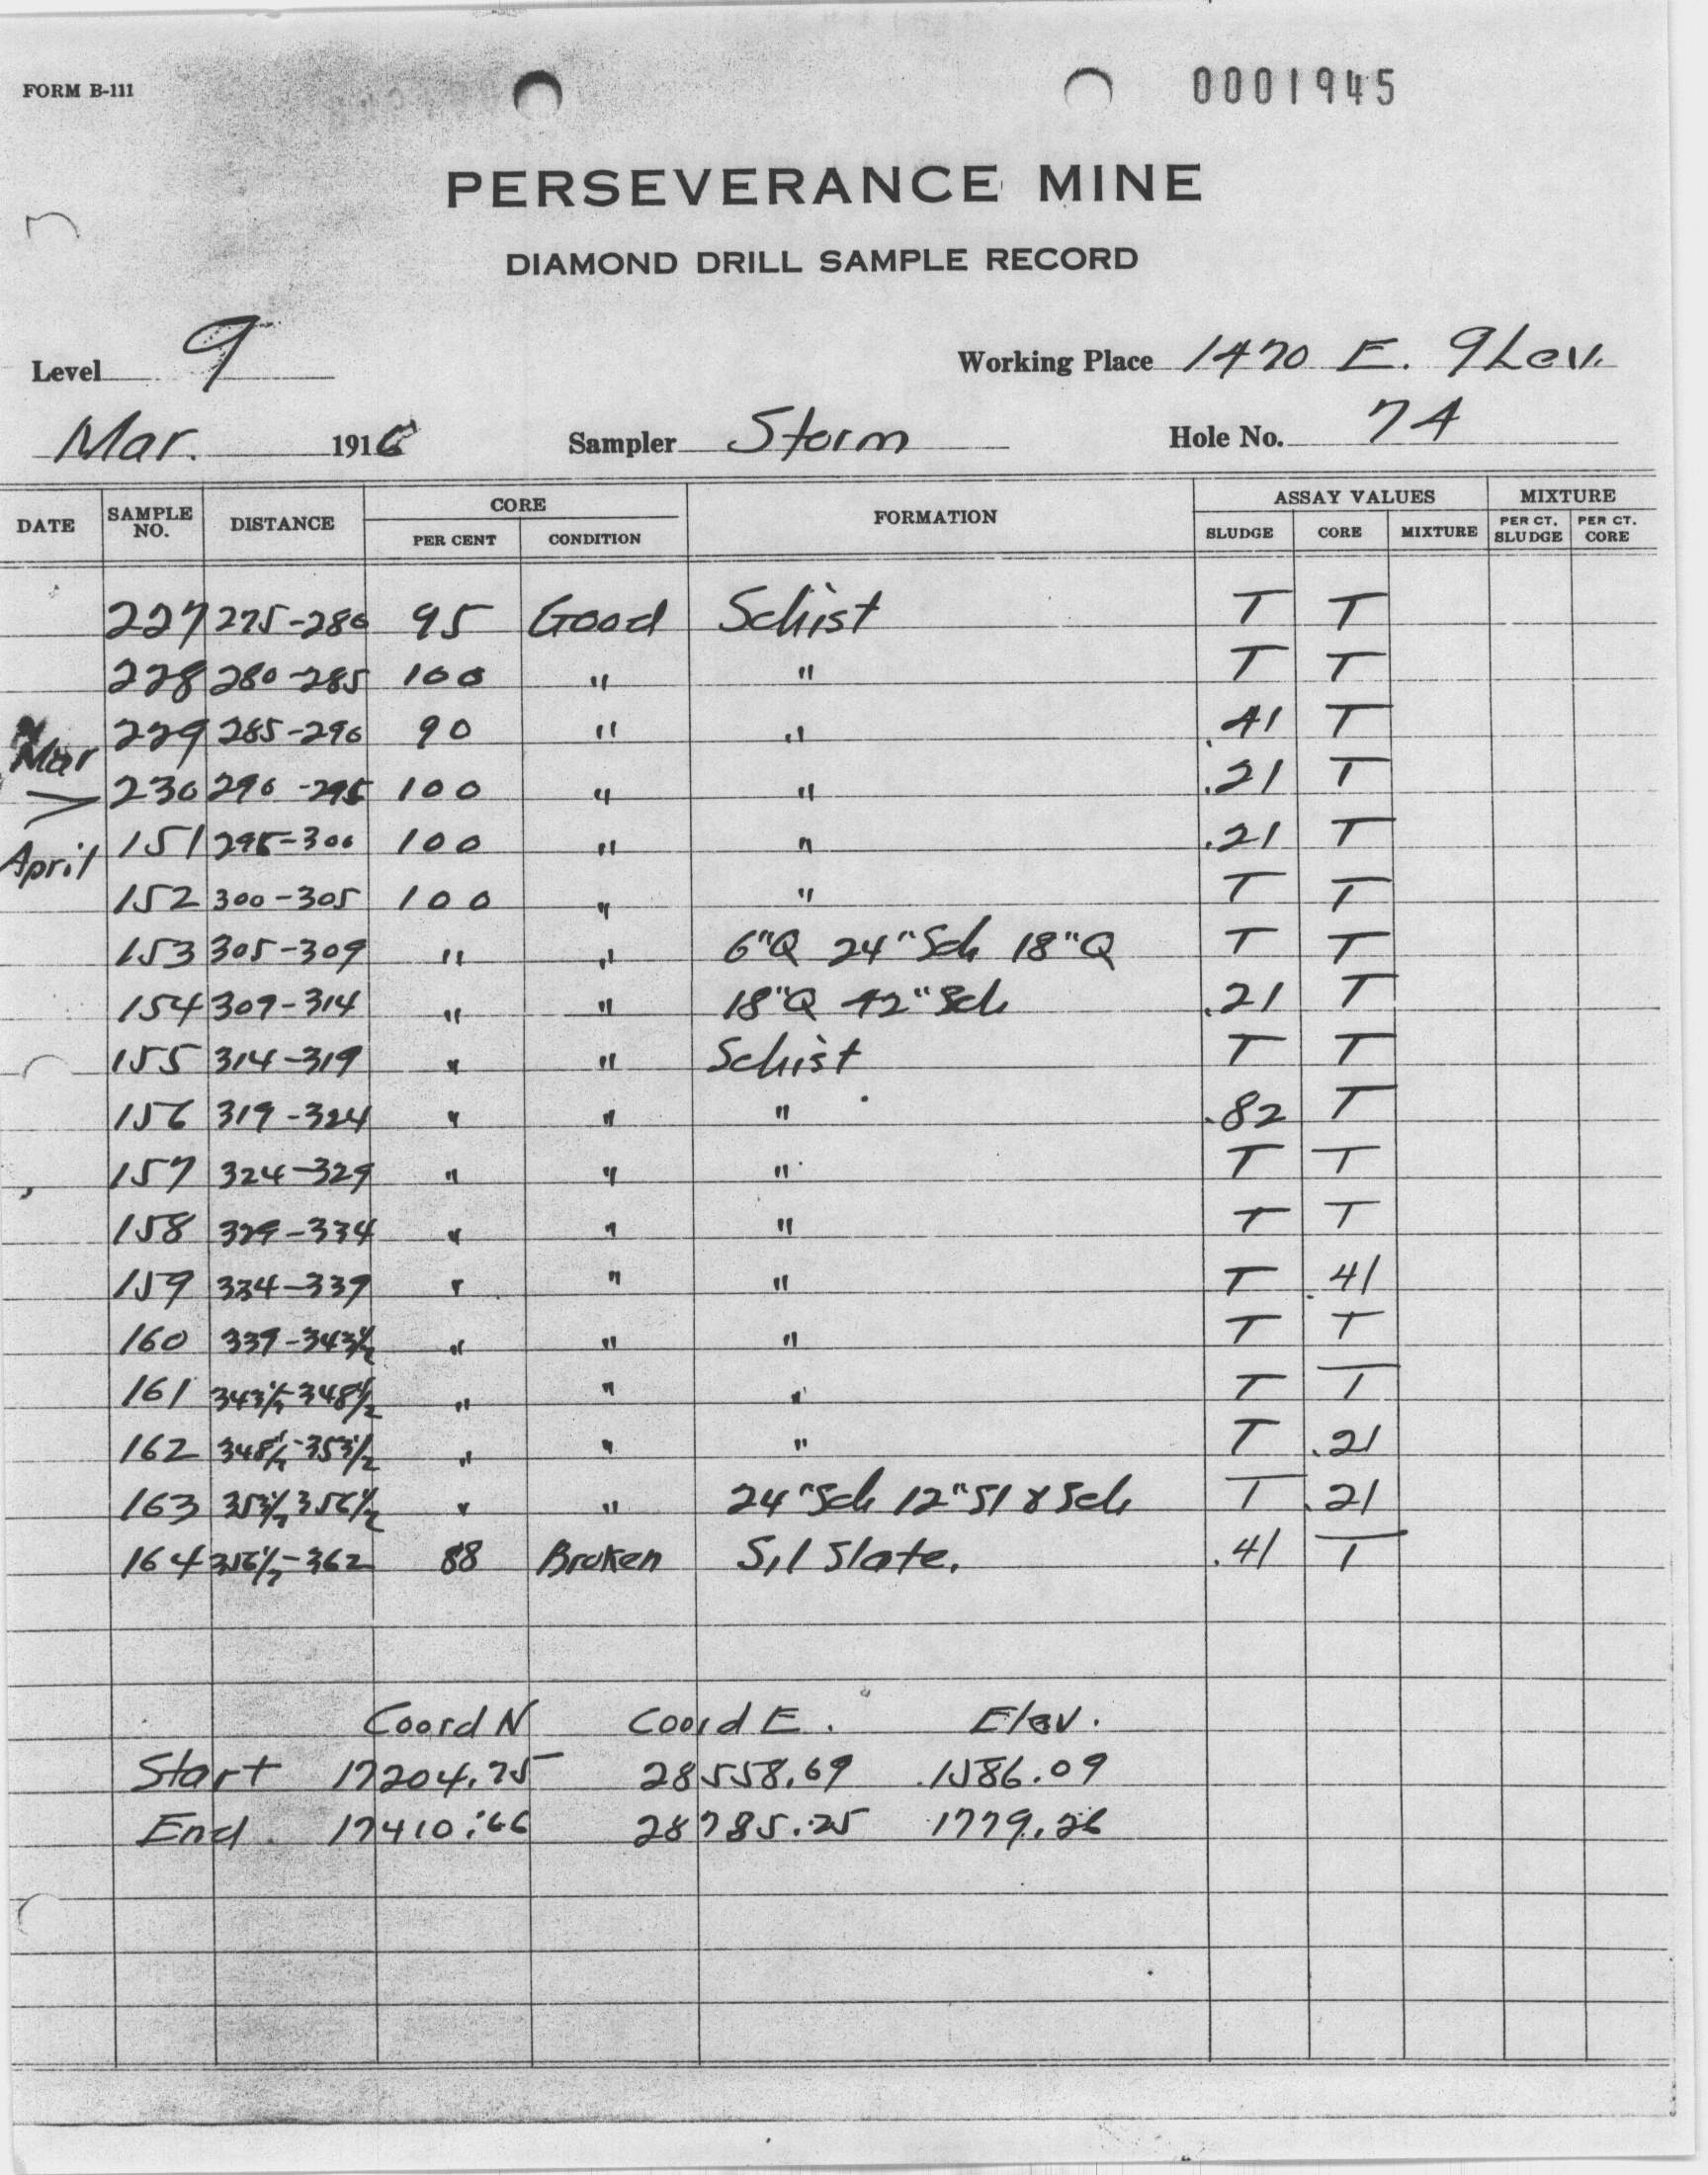 FORM B-111
0001945
PERSEVERANCE MINE
DIAMOND DRILL SAMPLE RECORD
Level 9 Working Place 1470 E. 9Lev.
Mar. 1916 Sampler Storm Hole No. 74
DATE SAMPLE NO. DISTANCE CORE PER CENT CONDITION FORMATION ASSAY VALUES SLUDGE CORE MIXTURE MIXTURE PER CT. SLUDGE PER CT. CORE
227 275-280 95 Good Schist T T
228 280-285 100 " " T T
Mar 229 285-290 90 " " .41 T
230 290-295 100 " " .21 T
April 151 295-300 100 " " .21 T
152 300-305 100 " " T T
153 305-309 " " 6"Q 24"Sch 18"Q T T
154 309-314 " " 18"Q 42"Sch .21 T
155 314-319 " " Schist T T
156 319-324 " " " .82 T
157 324-329 " " " T T
158 329-334 " " " T T
159 334-339 " " " T .41
160 339-343½ " " " T T
161 343½-348½ " " " T T
162 348½-353½ " " " T .21
163 353½-356½ " " 24"Sch 12"Sl & Sch T .21
164 356½-362 88 Broken Sil Slate. .41 T
Coord N Coord E. Elev.
Start 17204.75 28558.69 1586.09
End. 17410.66 28785.25 1779.26